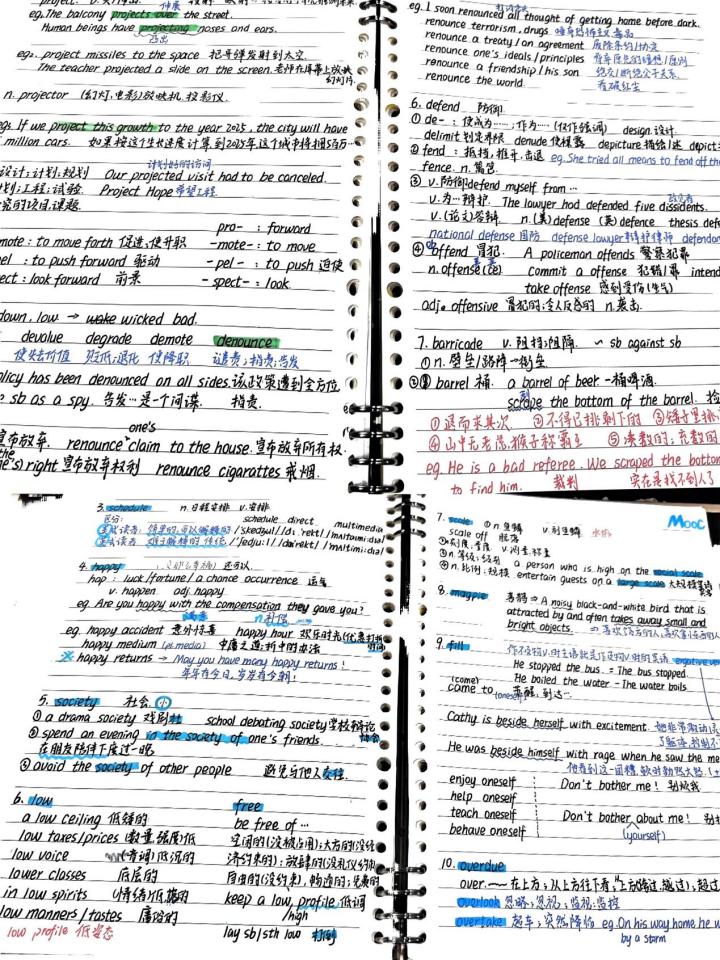 eg. The balcony projects over the street.
Human beings have projecting noses and ears.
凸出
eg2. project missiles to the space 把导弹发射到太空.
The teacher projected a slide on the screen. 老师在屏幕上放映
幻灯片.
n. projector (幻灯,电影)放映机,投影仪.
eg3. If we project this growth to the year 2025, the city will have
million cars. 如果按这个生长速度计算到2025年这个城市将拥5百万…
计划好的访问
设计;计划;规划 Our projected visit had to be canceled.
划;工程;试验 Project Hope 希望工程.
究的项目,课题.
pro- : forward
mote: to move forth 促进;使升职 -mote- : to move
pel : to push forward 驱动 -pel- : to push 迫使
ect: look forward 前景 -spect- : look
down, low → wicked bad.
devalue degrade demote denounce
使失去价值 贬低;退化 使降职 谴责;指责;告发
licy has been denounced on all sides 该政策遭到全方位
sb as a spy. 告发…是一个间谍. 指责.
one's
宣布放弃. renounce claim to the house. 宣布放弃所有权.
(one's) right 宣布放弃权利 renounce cigarattes 戒烟.
eg. I soon renounced all thought of getting home before dark.
renounce terrorism, drugs
renounce a treaty / an agreement 废除条约/协定
renounce one's ideals / principles
renounce a friendship / his son
renounce the world. 看破红尘
6. defend 防御.
① de- : 使成为……; 作为…… (仅作强调) design 设计
delimit 划定界限 denude 使裸露 depicture 描绘/述 depict
② fend : 抵挡,推开,击退 eg. She tried all means to fend off the
fence. n. 篱笆.
③ v. 防御 defend myself from…
v. 为…辩护. The lawyer had defended five dissidents.
v. (论文)答辩. n. (美) defense (英) defence thesis defe
national defense 国防 defense lawyer 辩护律师 defendan
④ offend 冒犯. A policeman offends 警察犯罪
n. offense commit a offense 犯错/罪 intend
take offense 感到受伤(生气)
adj. offensive 冒犯的;令人反感的 n. 袭击.
7. barricade v. 阻挡;阻障. ~ sb against sb
① n. 壁垒/路障→街垒.
② barrel 桶. a barrel of beer 一桶啤酒.
scrape the bottom of the barrel.
① 退而求其次 ② 不得已挑剩下的 ③ 矮子里挑
④ 山中无老虎,猴子称霸王 ⑤ 凑数的;充数的
eg. He is a bad referee. We scraped the bottom
to find him. 裁判 实在是找不到人了
3. schedule n. 日程安排 v. 安排
区分: schedule direct multimedia
4. happy
hap : luck/fortune/a chance occurrence 运气
v. happen adj. happy
eg. Are you happy with the compensation they gave you?
满意 n. 补偿
eg. happy accident 意外惊喜 happy hour 欢乐时光(优惠打折
时间)
happy medium 中庸之道;折中的办法
happy returns → May you have many happy returns!
年年有今日,岁岁有今朝!
5. society 社会.
① a drama society 戏剧社 school debating society 学校辩论
② spend an evening in the society of one's friends.
在朋友陪伴下度过一晚
③ avoid the society of other people 避免与他人交往.
6. low free
a low ceiling 低矮的 be free of…
low taxes/prices (数量,强度)低
low voice (音调)低沉的
lower classes 底层的
in low spirits 情绪低落的 keep a low profile 低调
low manners / tastes 庸俗的 /high
low profile 低姿态 lay sb/sth low 打倒
MOOC
7. scale ① n. 鱼鳞 v. 刮鱼鳞
scale off 脱落
a person who is high on the social scale
entertain guests on a large scale
8. magpie 喜鹊 ⇒ A noisy black-and-white bird that is
attracted by and often takes away small and
bright objects.
9. fill
He stopped the bus. = The bus stopped.
He boiled the water - The water boils
(come)
came to (oneself) 苏醒,到达…
Cathy is beside herself with excitement.
He was beside himself with rage when he saw the me
enjoy oneself Don't bother me! 别烦我
help oneself
teach oneself Don't bother about me!
behave oneself (yourself)
10. overdue
over.
overlook 忽略;忽视;监视;监控
overtake 超车;突然降临 eg. On his way home he w
by a storm